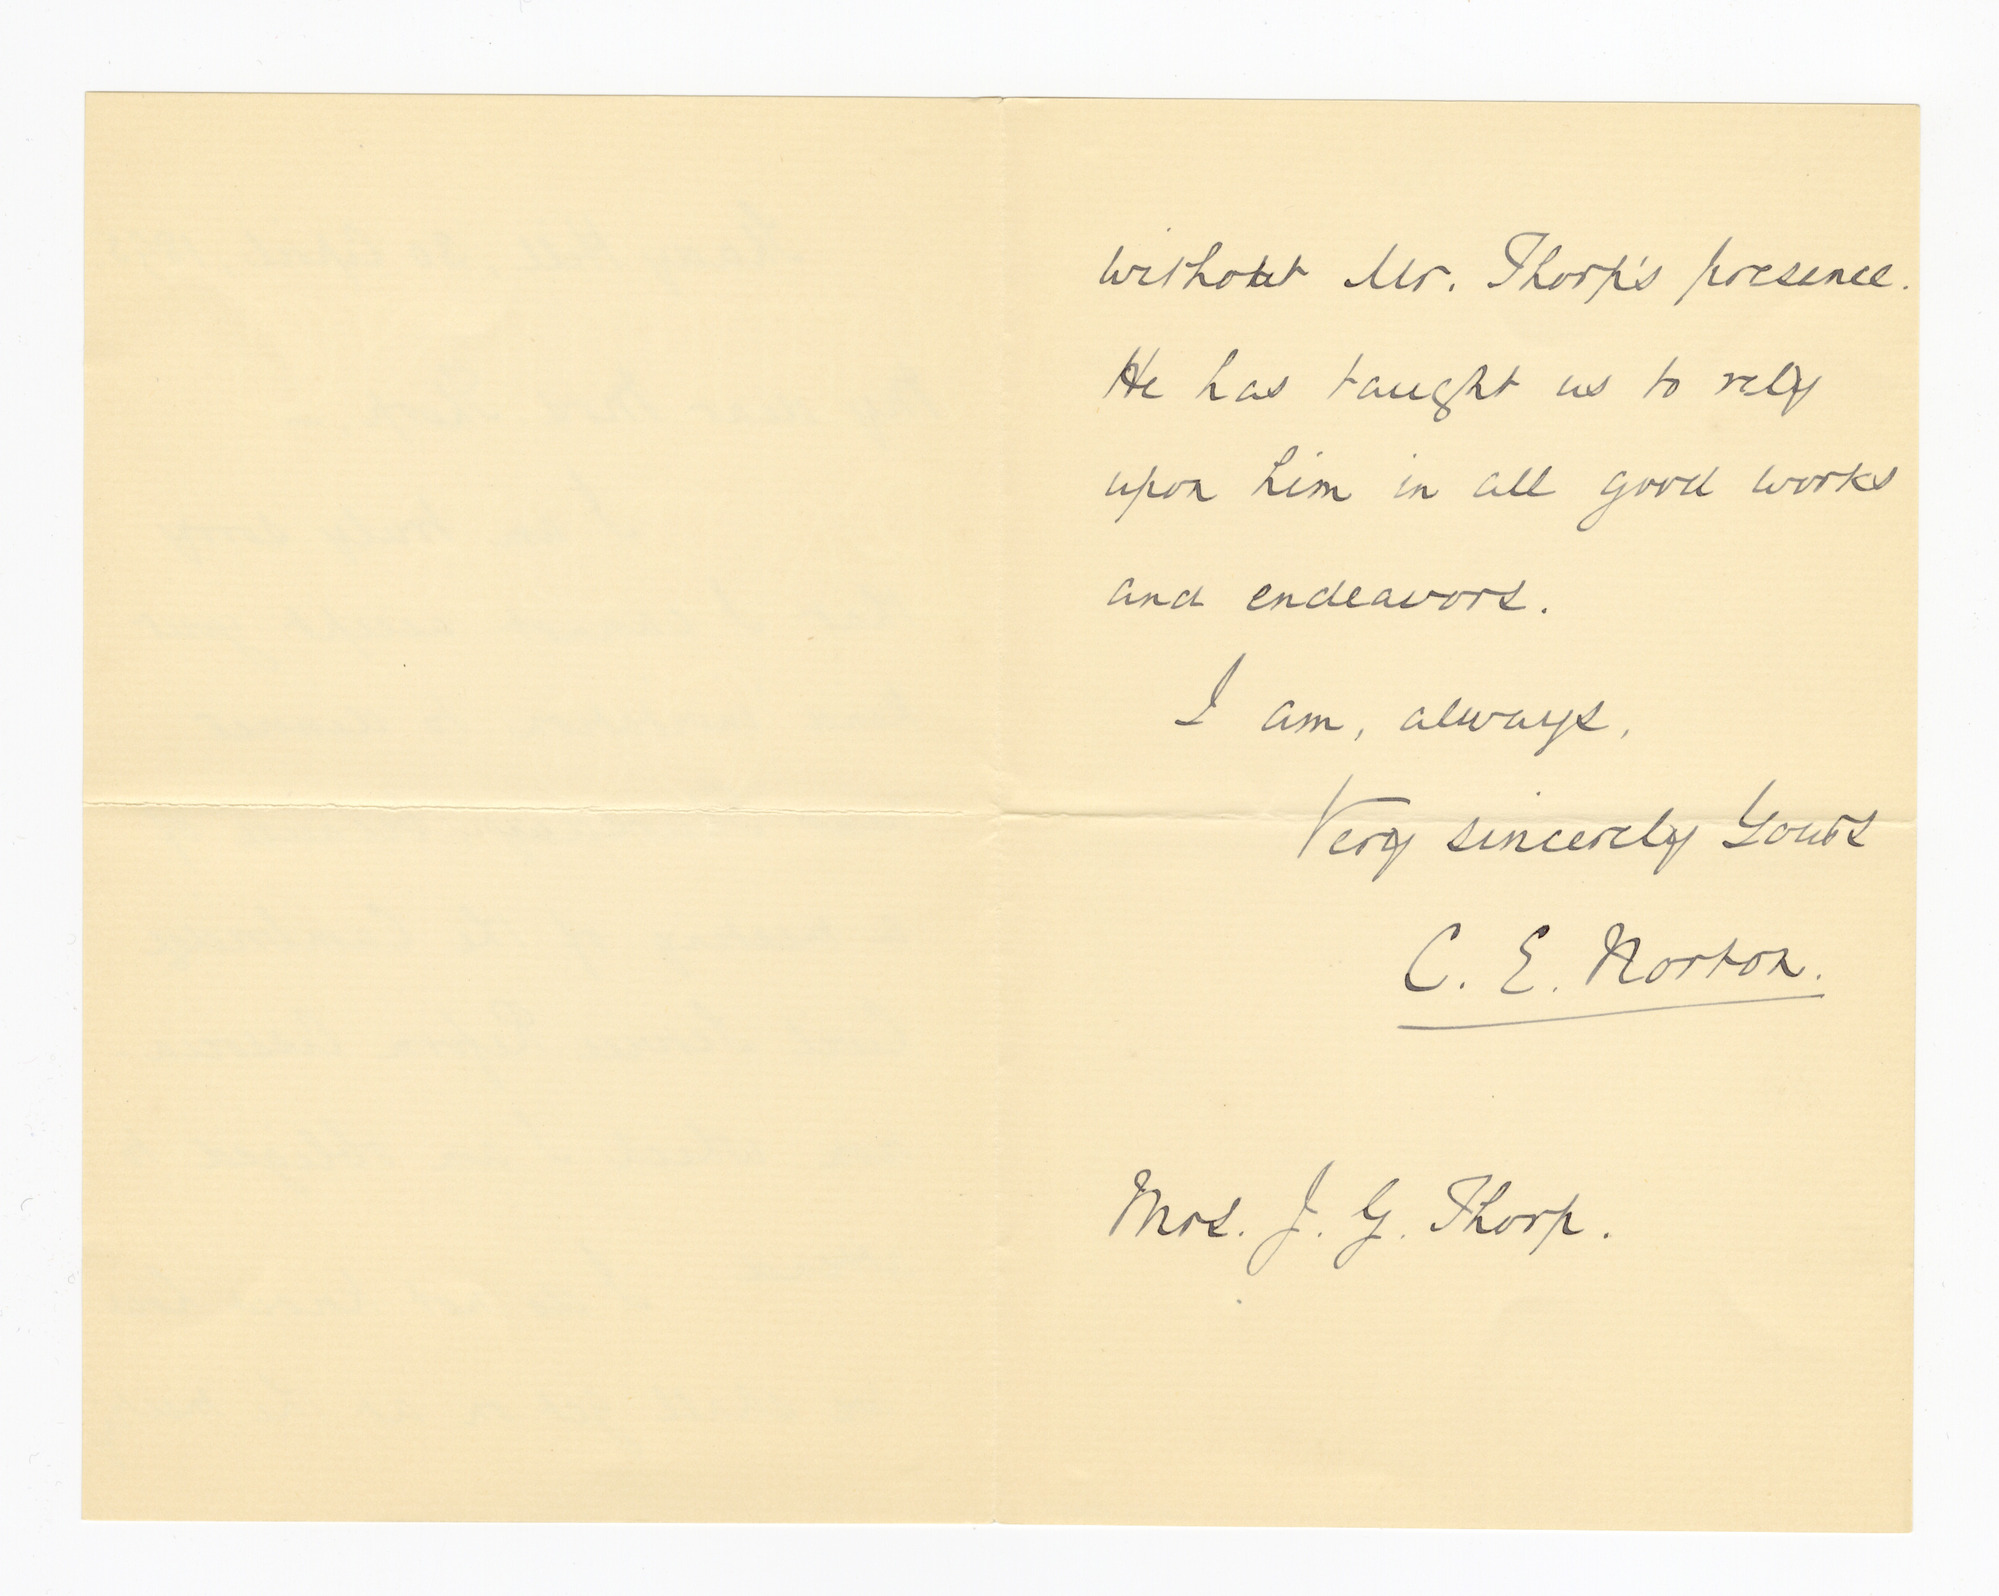 without Mr. Thorp's presence.
He has taught us to rely
upon him in all good works
and endeavors.
I am, always,
Very sincerely Yours
C. E. Norton.
Mrs. J. G. Thorp.